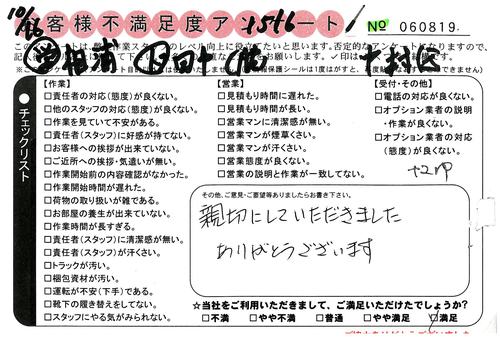 10/16
お客様不満足度アンケート 1516 № 060819
【作業】
□責任者の対応(態度)が良くない。
□他のスタッフの対応(態度)が良くない。
□作業を見ていて不安がある。
□責任者(スタッフ)に好感が持てない。
□お客様への挨拶が出来ていない。
□ご近所への挨拶・気遣いが無い。
□作業開始前の内容確認がなかった。
□作業開始時間が遅れた。
□荷物の取り扱いが雑である。
□お部屋の養生が出来ていない。
□作業時間が長すぎる。
□責任者(スタッフ)に清潔感が無い。
□責任者(スタッフ)が汗くさい。
□トラックが汚い。
□梱包資材が汚い。
□運転が不安(下手)である。
□靴下の履き替えをしてない。
□スタッフにやる気がみられない。
チェックリスト
【営業】
□見積もり時間に遅れた。
□見積もり時間が長い。
□営業マンに清潔感が無い。
□営業マンが煙草くさい。
□営業マンが汗くさい。
□営業態度が良くない。
□営業の説明と作業が一致してない。
【受付・その他】
□電話の対応が良くない。
□オプション業者の説明
・作業が良くない。
□オプション業者の対応
(態度)が良くない。
その他、ご意見・ご要望等ありましたらお書き下さい。
親切にしていただきました
ありがとうございます
☆当社をご利用いただきまして、ご満足いただけたでしょうか?
□不満 □やや不満 □普通 □やや満足 ☑満足